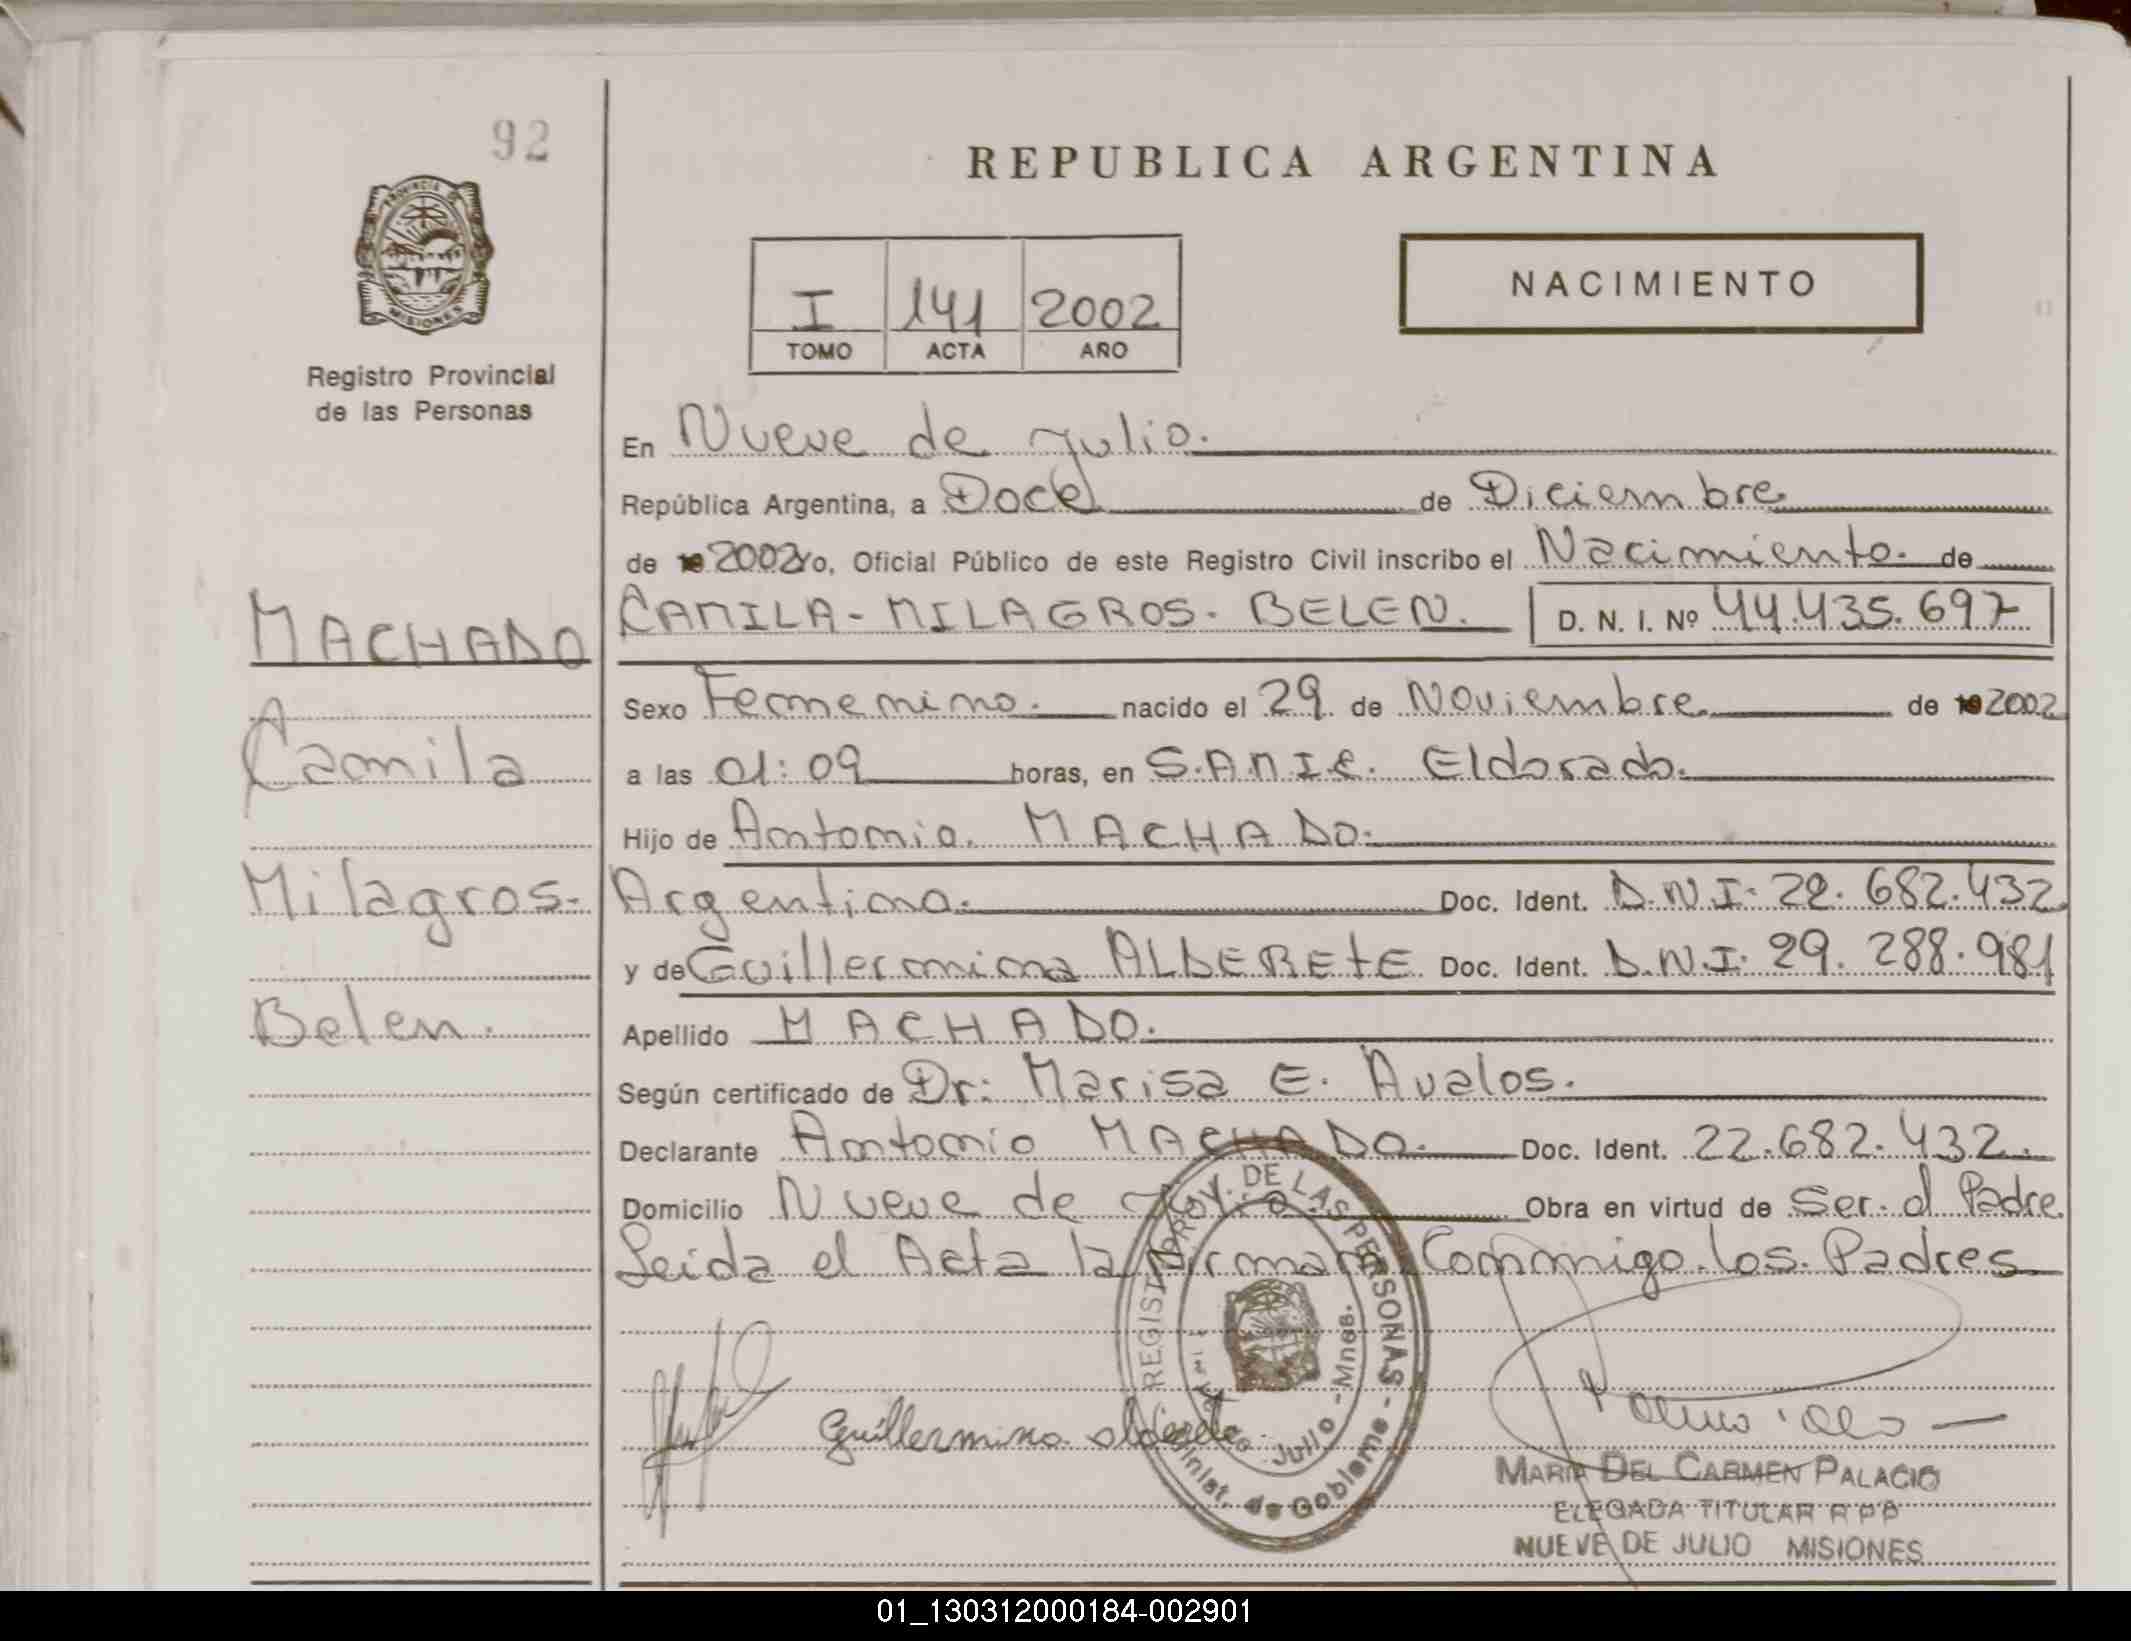 92
REPUBLICA ARGENTINA
PROVINCIA DE
MISIONES
Registro Provincial
de las Personas
I 141 2002
TOMO ACTA AÑO
NACIMIENTO
En Nueve de Julio.
República Argentina, a Doce de Diciembre
de 19 2002 Yo, Oficial Público de este Registro Civil inscribo el Nacimiento. de
MACHADO
CAMILA-MILAGROS. BELEN. D. N. I. Nº 44.435.697
Sexo Femenino. nacido el 29 de Noviembre de 19 2002
Camila
a las 01:09 horas, en S.A.M.I.C. Eldorado.
Hijo de Antonio. MACHADO.
Milagros.
Argentino. Doc. Ident. D.N.I. 22.682.432
y de Guillermina ALDERETE Doc. Ident. D.N.I. 29.288.981
Belen.
Apellido MACHADO.
Según certificado de Dr: Marisa E. Avalos.
Declarante Antonio MACHADO. Doc. Ident. 22.682.432.
Domicilio Nueve de Julio Obra en virtud de Ser. el Padre
Leida el Acta la firman Conmigo los Padres
REGIST. PROV. DE LAS PERSONAS - Minist. de Gobierno -
Julio - Mnes.
Guillermina alderete
MARIA DEL CARMEN PALACIO
ELEGADA TITULAR R P P
NUEVE DE JULIO MISIONES
01_130312000184-002901